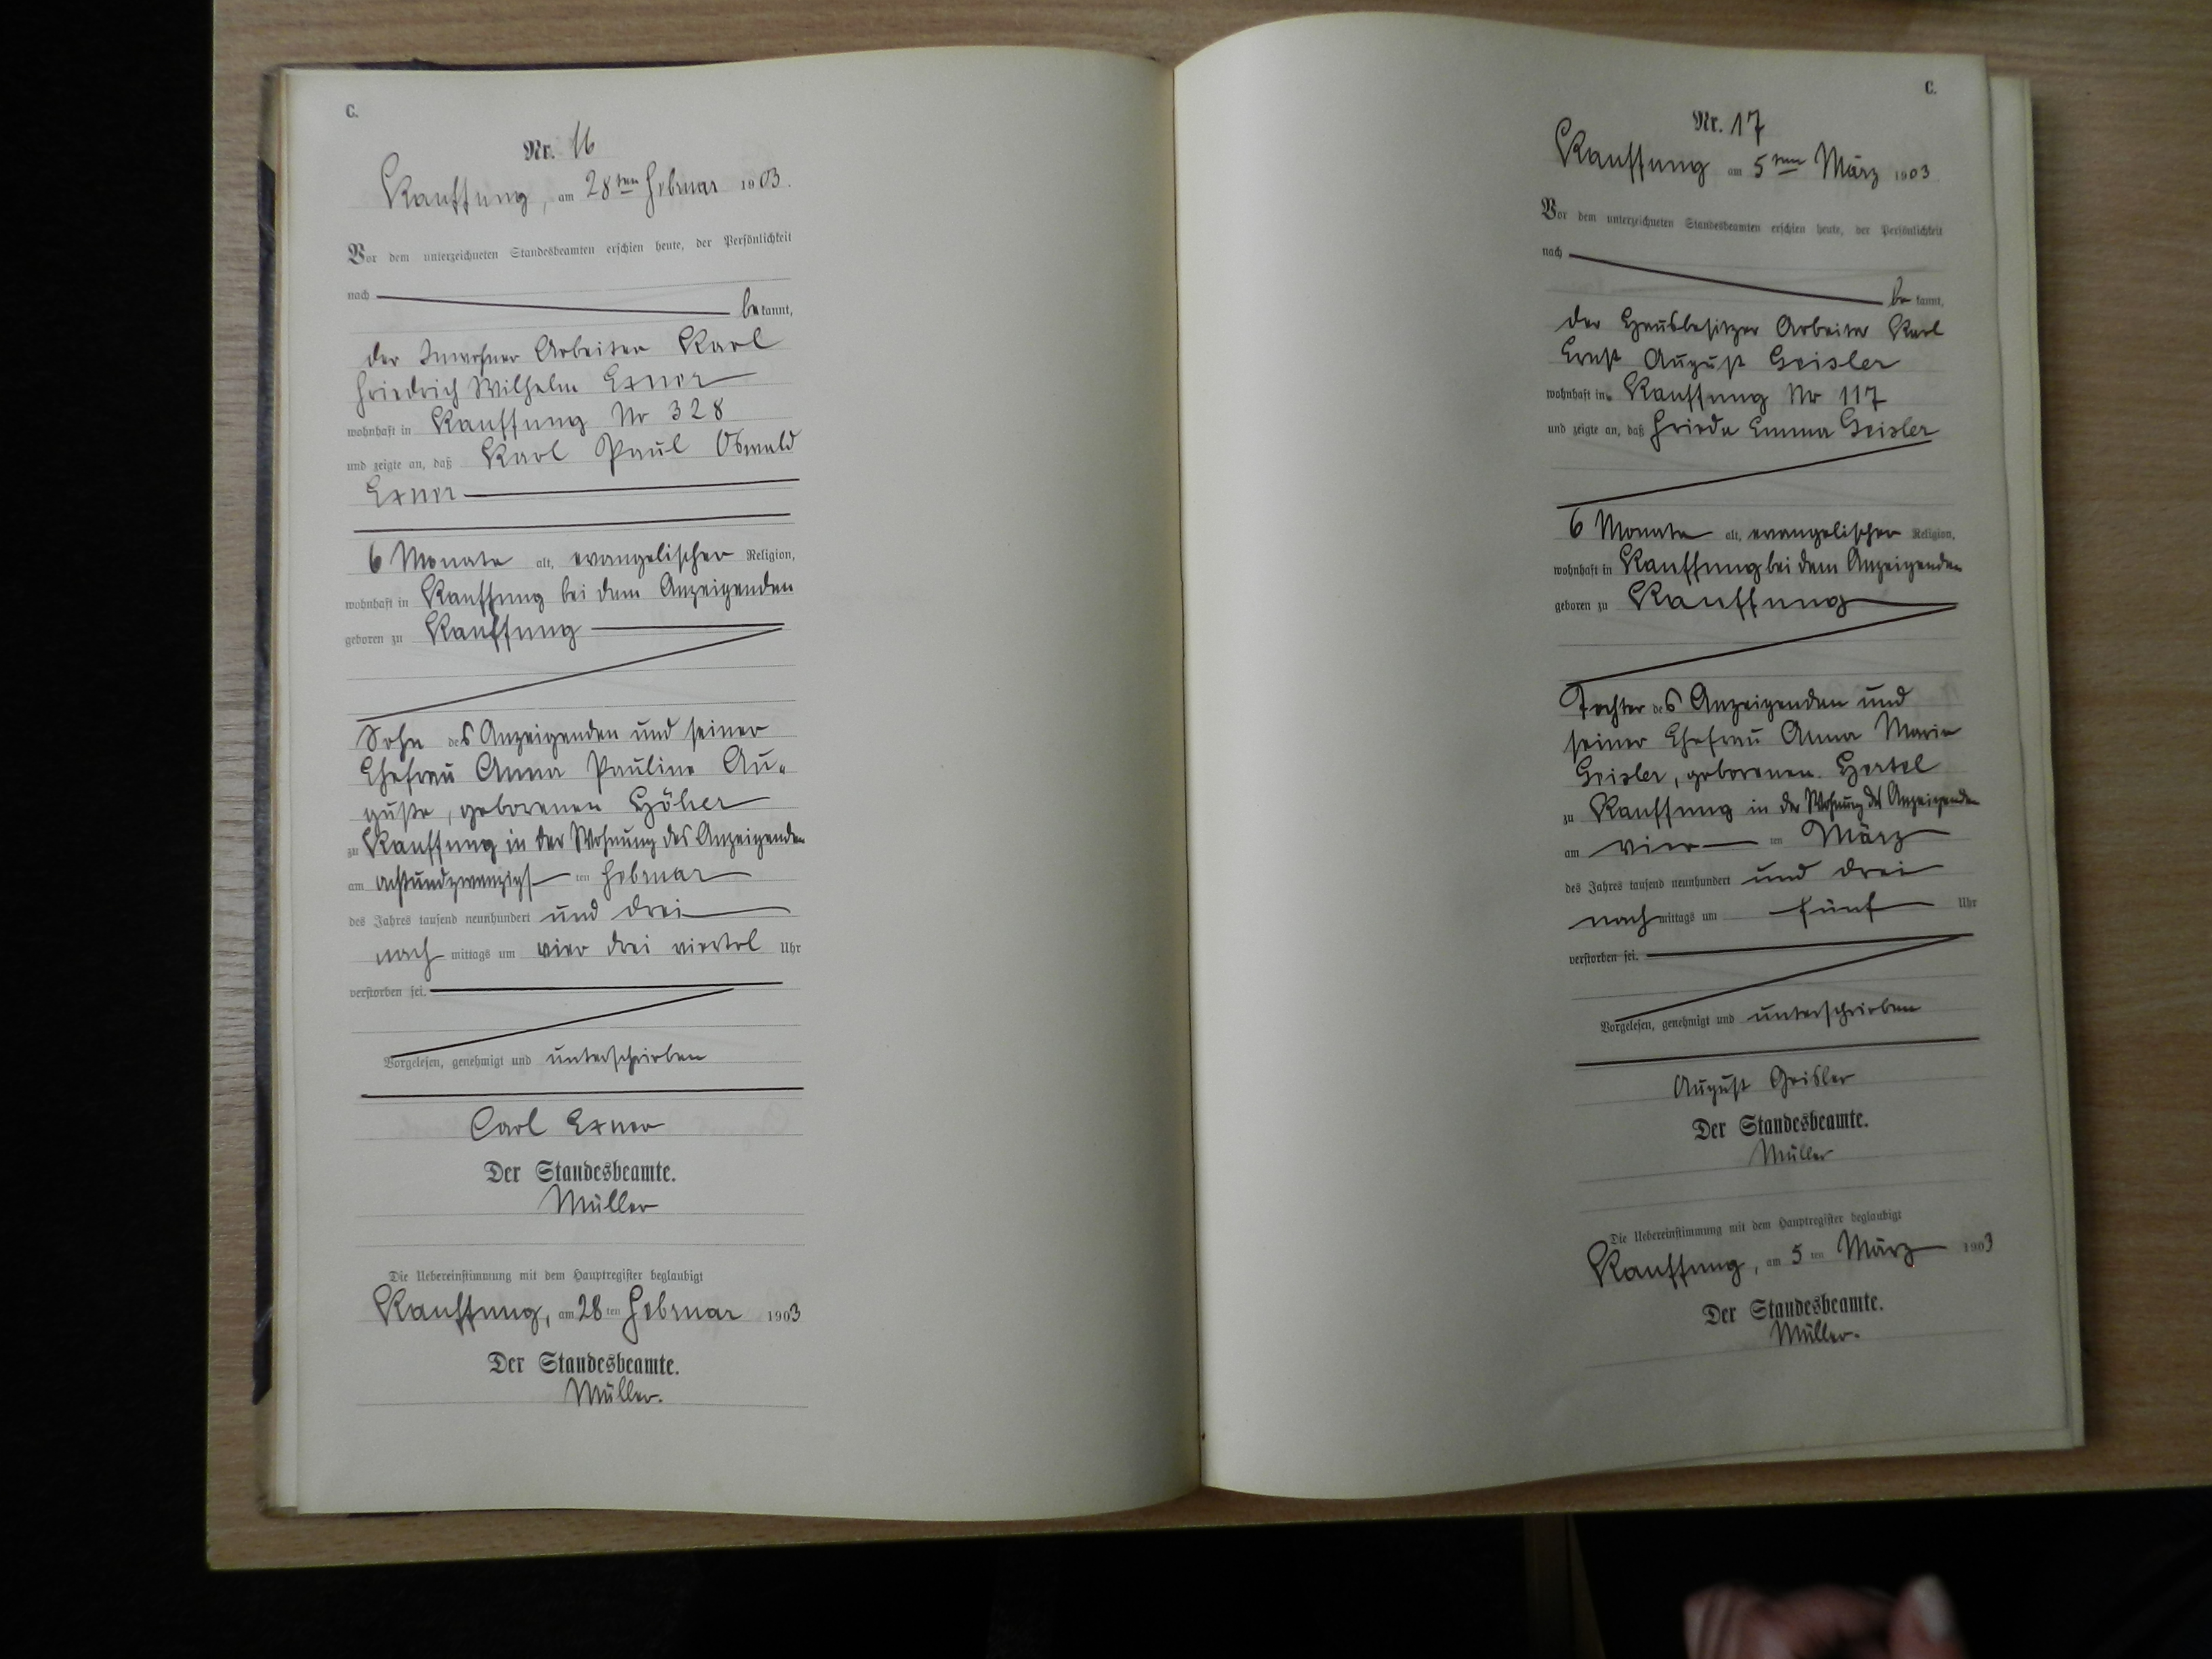 C.
Nr. 16
Kauffung, am 28ten Februar 1903.
Vor dem unterzeichneten Standesbeamten erschien heute, der Persönlichkeit
nach be kannt,
der Inwohner Arbeiter Karl
Friedrich Wilhelm Exner
wohnhaft in Kauffung Nr 328
und zeigte an, daß Karl Paul Oswald
Exner
6 Monate alt, evangelischer Religion,
wohnhaft in Kauffung bei dem Anzeigenden
geboren zu Kauffung
Sohn des Anzeigenden und seiner
Ehefrau Anna Pauline Au-
guste, geborenen Höher
zu Kauffung in der Wohnung des Anzeigenden
am achtundzwanzigsten Februar
des Jahres tausend neunhundert und drei
nach mittags um vier drei viertel Uhr
verstorben sei.
Vorgelesen, genehmigt und unterschrieben
Carl Exner
Der Standesbeamte.
Müller
Die Uebereinstimmung mit dem Hauptregister beglaubigt
Kauffung, am 28 ten Februar 1903
Der Standesbeamte.
Müller.
C.
Nr. 17
Kauffung am 5ten März 1903
Vor dem unterzeichneten Standesbeamten erschien heute, der Persönlichkeit
nach be kannt,
der Hausbesitzer Arbeiter Karl
Ernst August Geisler
wohnhaft in Kauffung Nr 117
und zeigte an, daß Frieda Emma Geisler
6 Monate alt, evangelischer Religion,
wohnhaft in Kauffung bei dem Anzeigenden
geboren zu Kauffung
Tochter des Anzeigenden und
seiner Ehefrau Anna Marie
Geisler, geborenen Hertel
zu Kauffung in der Wohnung des Anzeigenden
am vier ten März
des Jahres tausend neunhundert und drei
nach mittags um fünf Uhr
verstorben sei.
Vorgelesen, genehmigt und unterschrieben
August Geisler
Der Standesbeamte.
Müller
Die Uebereinstimmung mit dem Hauptregister beglaubigt
Kauffung, am 5 ten März 1903
Der Standesbeamte.
Müller.